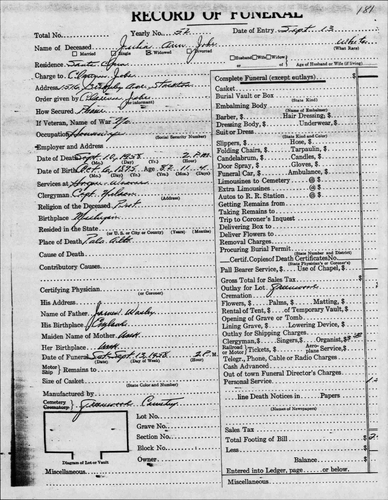 181
RECORD OF FUNERAL
Total No. Yearly No. 52 Date of Entry Sept 13
Name of Deceased Ann John White
Married Single Widowed Divorced (What Race)
Residence Husband Wife Widow of Age of Husband or Wife (if living)
Charge to John
Address Stockton
Order given by John
How Secured
If Veteran, of War No
Occupation Housewife
(Social Security Number)
Employer and Address
Date of Death Sept. 10, 1958 2 P.M.
(Mo.) (Day) (Yr.) (Hour)
Date of Birth Oct. 6, 1875 Age 82 11 4
(Mo.) (Day) (Yr.) (Yrs.) (Mos.) (Days)
Services at
Clergyman Capt. Wilson
Religion of the Deceased Prot.
Birthplace Michigan
Resided in the State
(or U.S. or City or County) (Years) (Months)
Place of Death Palo Alto
Cause of Death
Contributory Causes
Certifying Physician
His Address
Name of Father
His Birthplace England
Maiden Name of Mother unk
Her Birthplace unk
Date of Funeral Sat Sept 13, 1958 2 P.M.
(Mo.) (Day of Week) (Hour)
Motor Ship Remains to
Size of Casket
(State Color and Number)
Manufactured by
Cemetery Crematory Greenwood Cemetery
Lot No.
Grave No.
Section No.
Block No.
Owner
Diagram of Lot or Vault
Miscellaneous
Complete Funeral (except outlays) $
Casket
Burial Vault or Box
(State Kind)
Embalming Body
(Name of Embalmer)
Barber, $ Hair Dressing, $
Dressing Body, $ Underwear, $
Suit or Dress
(State Kind and Color)
Slippers, $ Hose, $
Folding Chairs, $ Tarpaulin, $
Candelabrum, $ Candles, $
Door Spray, $ Gloves, $
Funeral Car, $ Ambulance, $
Limousines to Cemetery @ $
Extra Limousines @ $
Autos to R. R. Station @ $
Getting Remains from
Taking Remains to
Trip to Coroner's Inquest
Delivering Box to
Deliver Flowers to
Removal Charges
Procuring Burial Permit
(State Number and District)
Certif. Copies of Death Certificates No.
(State Physician's or Coroner's)
Pall Bearer Service, $ Use of Chapel, $
Gross Total for Sales Tax $
Outlay for Lot Greenwood
Cremation
Flowers, $ Palms, $ Matting, $
Rental of Tent, $ of Temporary Vault, $
Opening of Grave or Tomb
Lining Grave, $ Lowering Device, $
Outlay for Shipping Charges
Clergyman, $ Singers, $ Organist, $
Railroad Motor Tickets, $ Aeroplane Service, $
Telegr., Phone, Cable or Radio Charges
Cash Advanced
Out of town Funeral Director's Charge
Personal Service
line Death Notices in Papers
(Names of Newspapers)
Sales Tax
Total Footing of Bill $
Less
Balance $
Entered into Ledger, page or below.
Miscellaneous